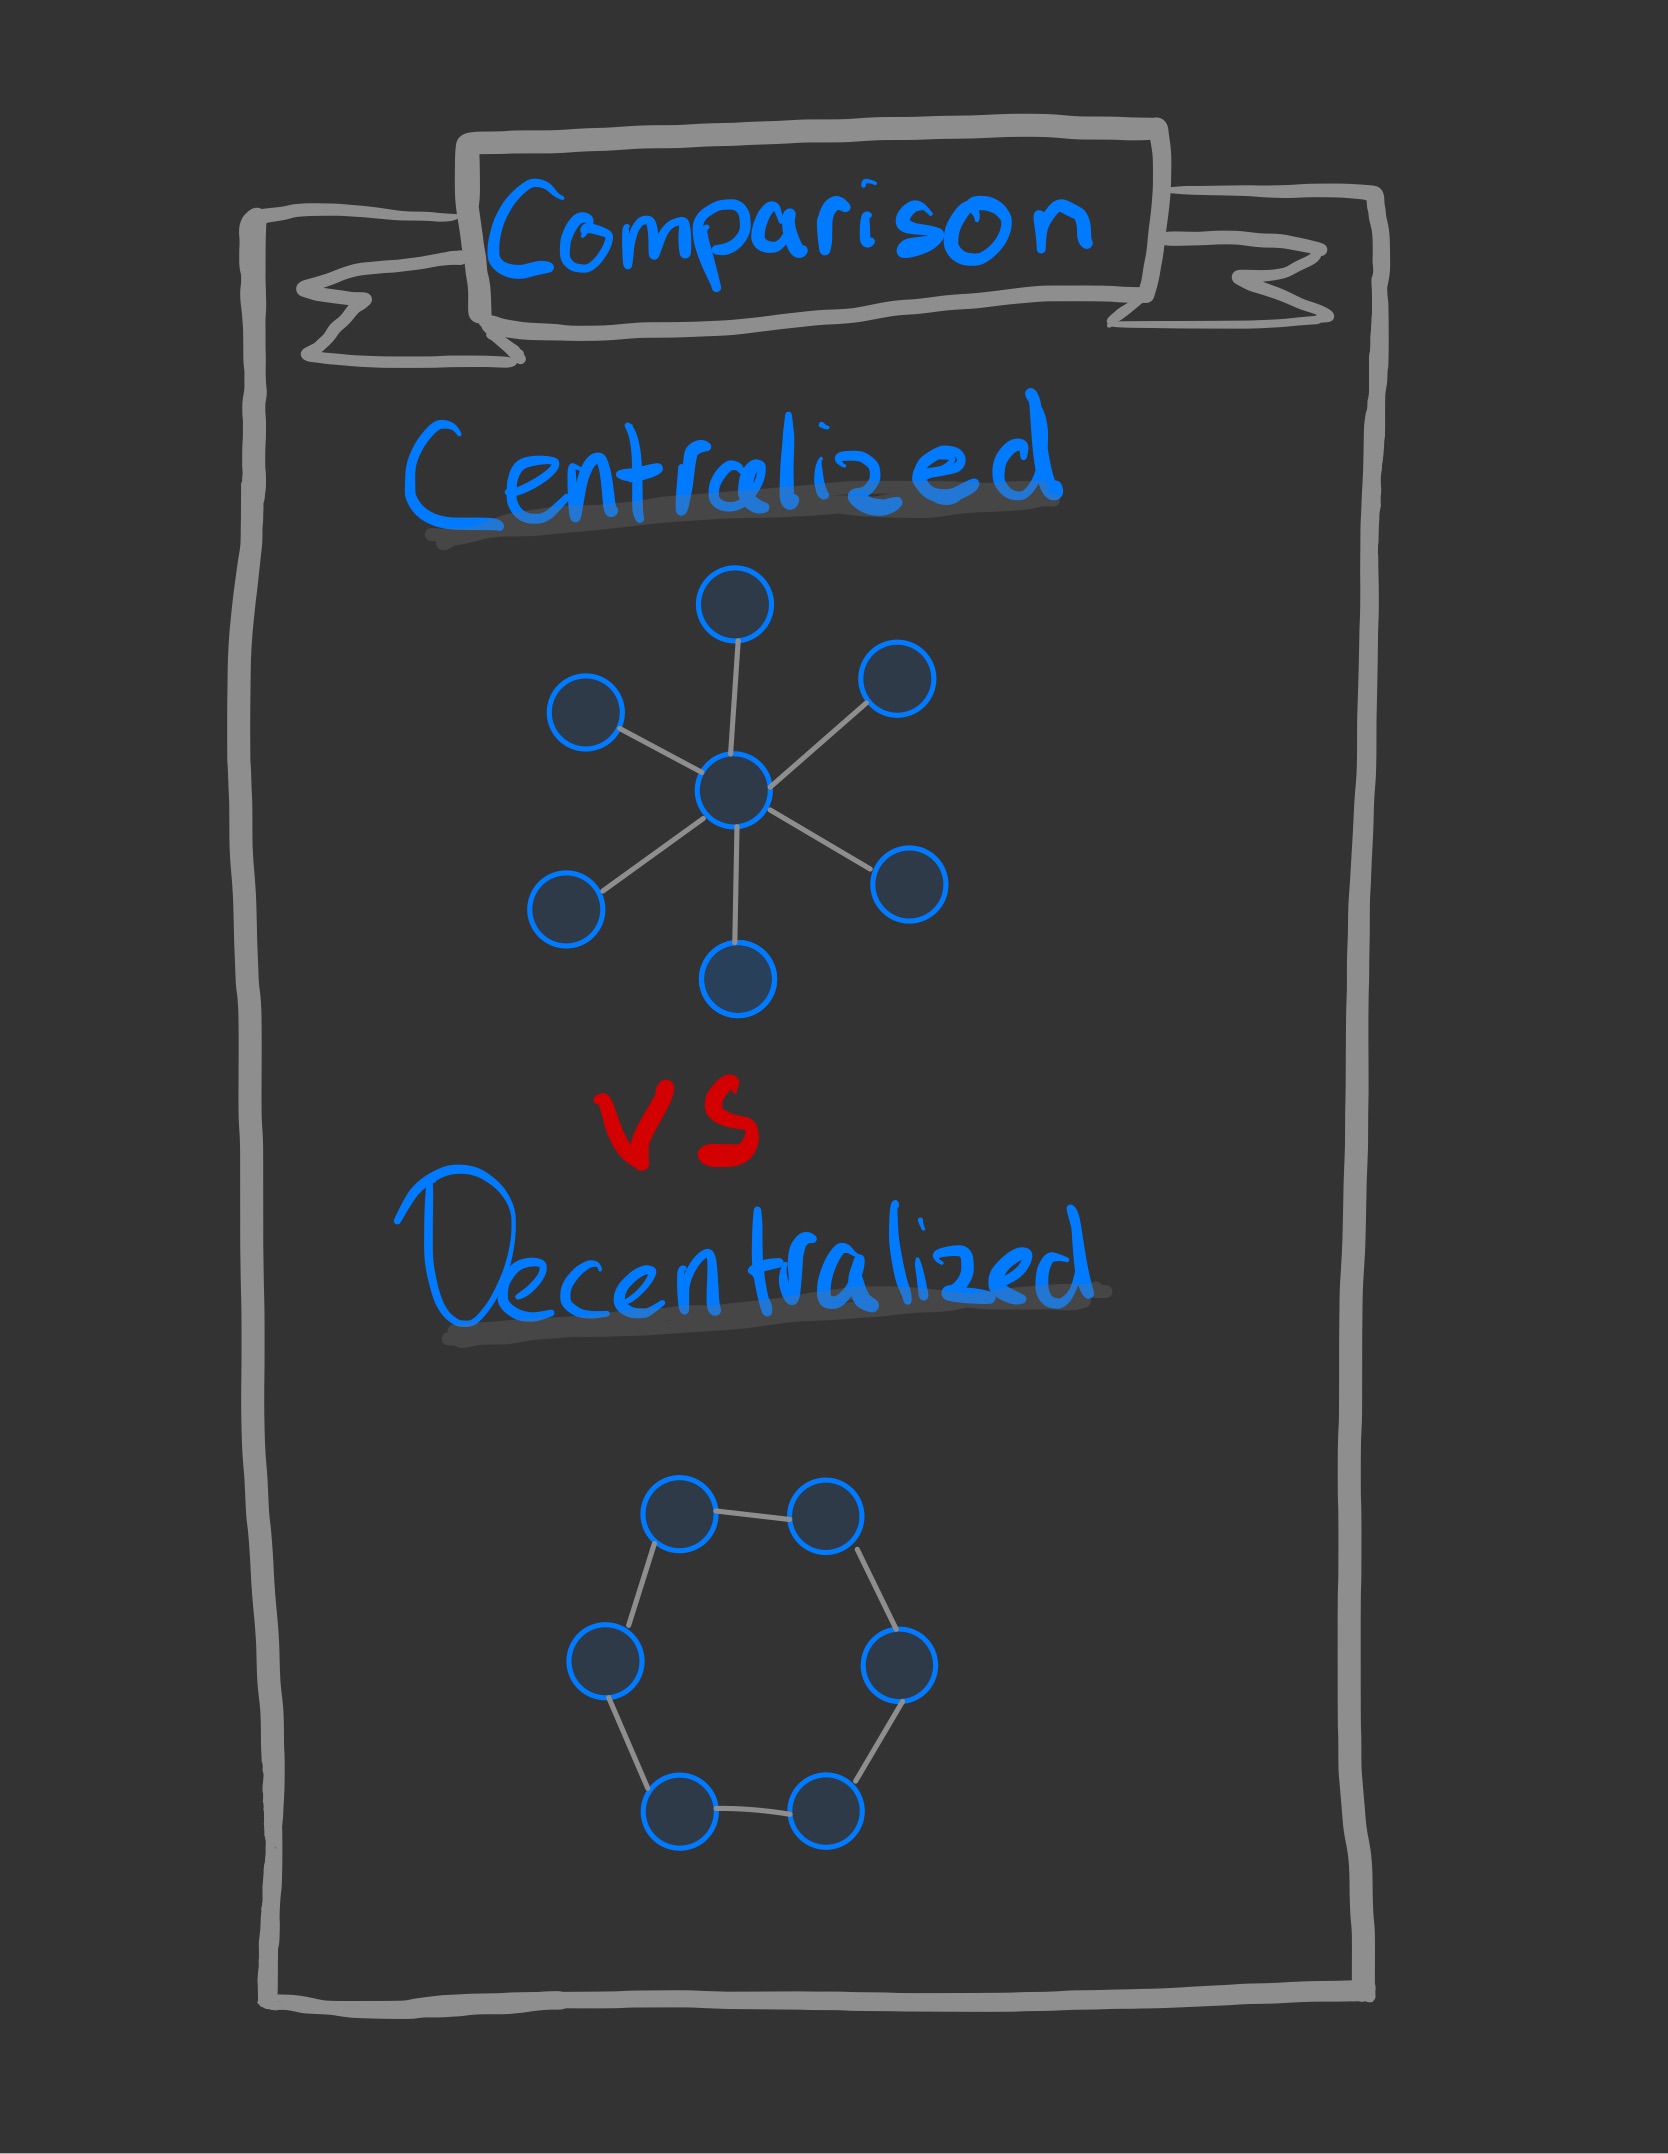 Comparison
Centralized
vs
Decentralized